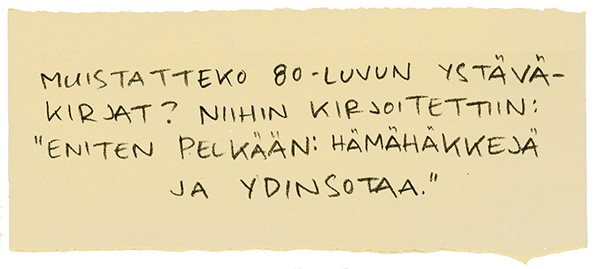 MUISTATTEKO 80-LUVUN YSTÄVÄ-
KIRJAT? NIIHIN KIRJOITETTIIN:
"ENITEN PELKÄÄN: HÄMÄHÄKKEJÄ
JA YDINSOTAA."